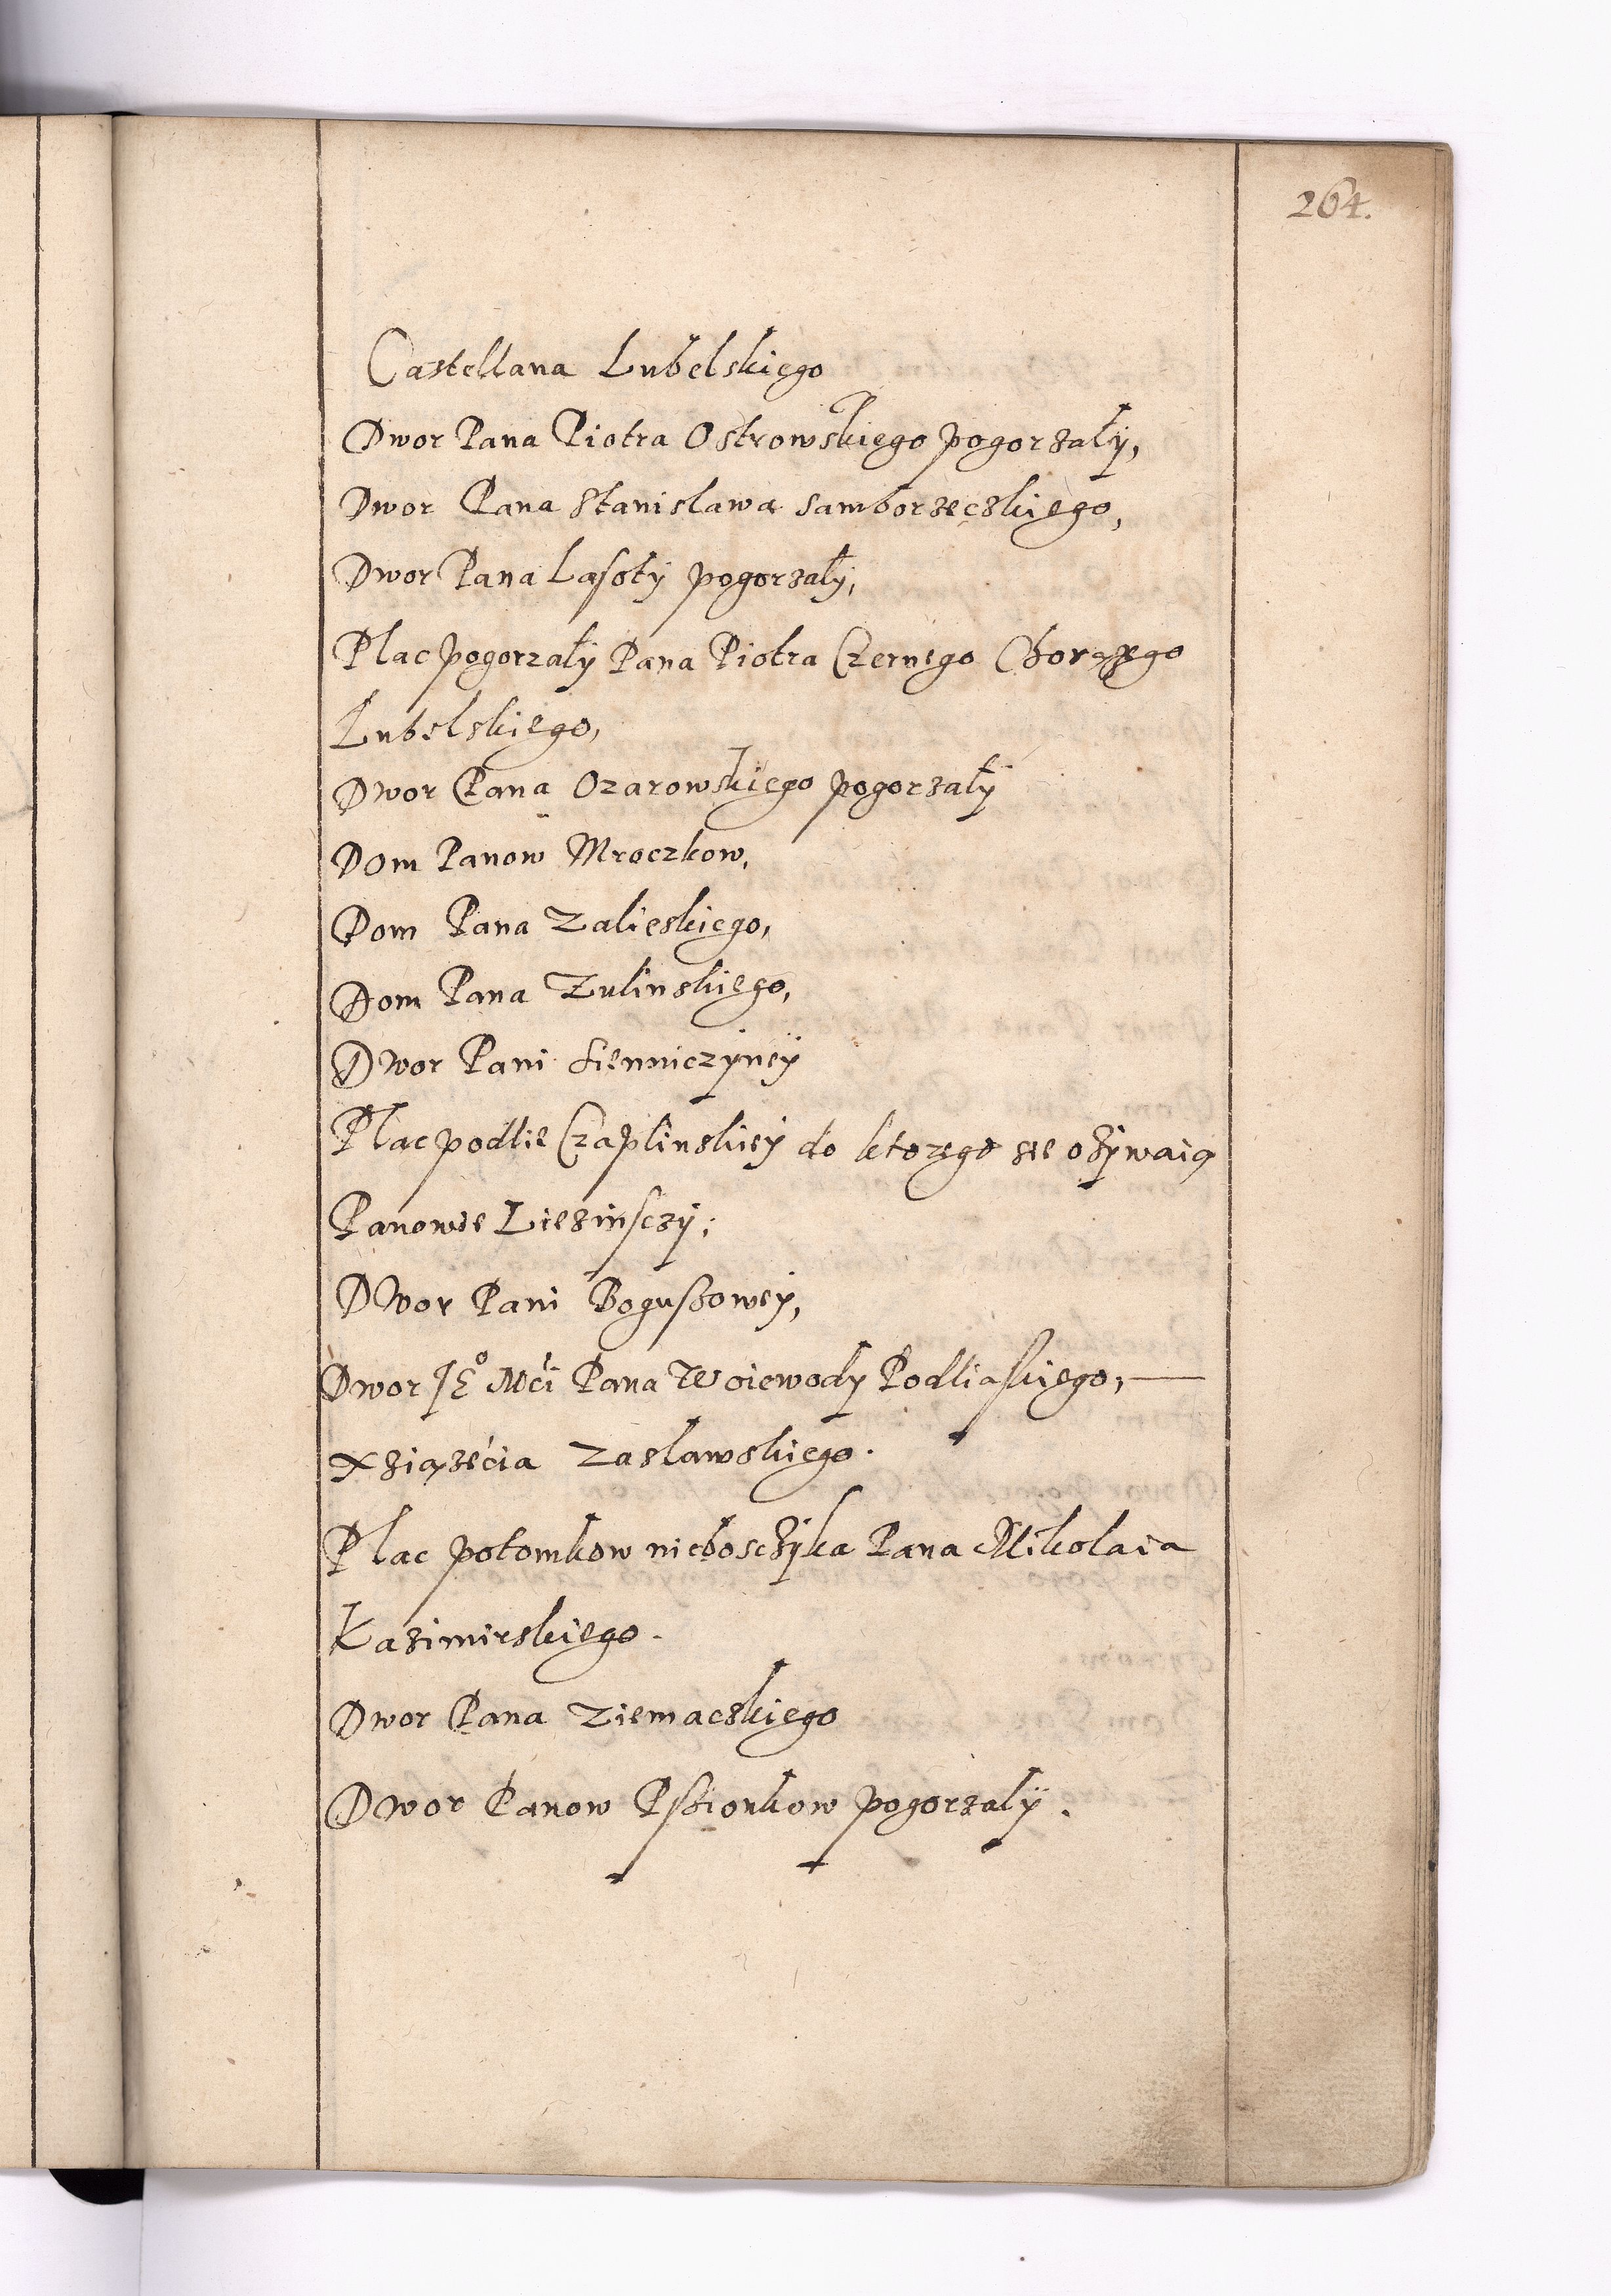 264.
Castellana Lubelskiego
Dwor Pana Piotra Ostrowskiego pogorzały,
Dwor Pana Stanislawa Samborzeczkiego,
Dwor Pana Lasoty pogorzały,
Plac pogorzały Pana Piotra Czernego Chorążego
Lubelskiego,
Dwor Pana Ozarowskiego pogorzały
Dom Panow Mroczkow,
Dom Pana Zalieskiego,
Dom Pana Zulinskiego,
Dwor Pani Sienniczyney
Plac podlie Czaplinskiey do ktorego sie ozywaią
Panowie Liezinsczy;
Dwor Pani Boguszowey,
Dwor JEº Mći Pana Woiewody Podliaskiego,
Xziązęćia Zaslawskiego.
Plac potomkow nieboszczyka Pana Mikolaia
Kazimirskiego.
Dwor Pana Ziemacskiego
Dwor Panow Pszionkow pogorzały.